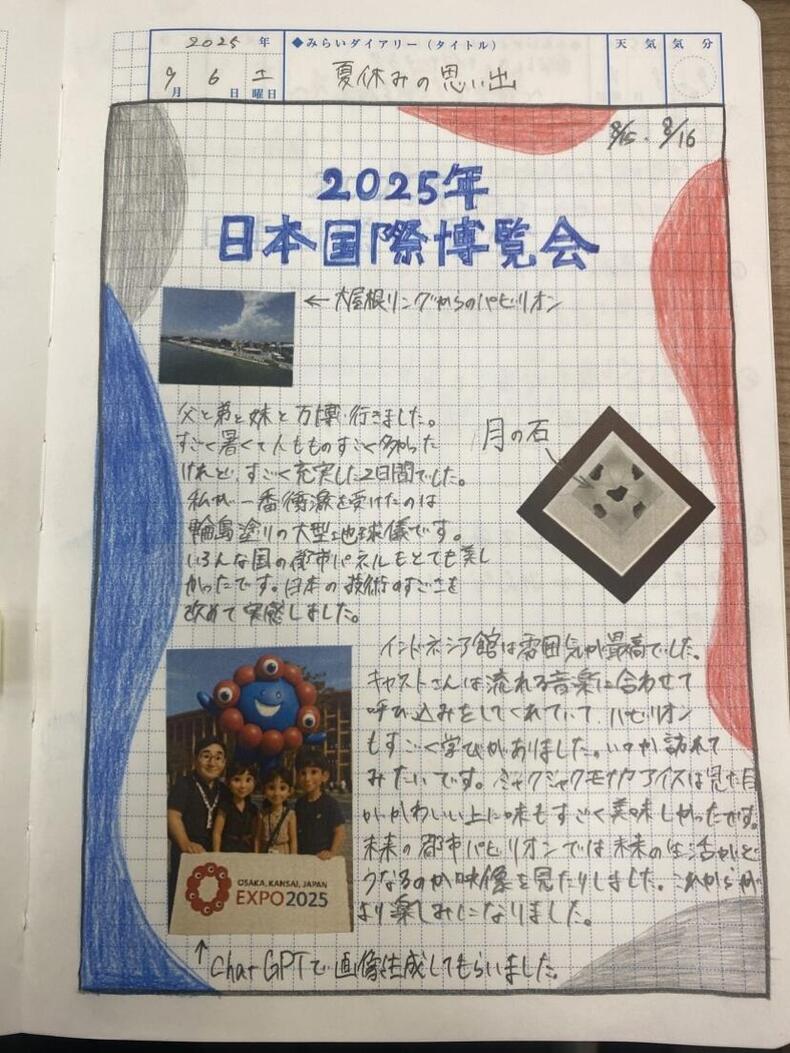 2025年
◆みらいダイアリー(タイトル)
天気
気分
9月6日土曜日
夏休みの思い出
8/15・8/16
2025年
日本国際博覧会
←大屋根リングからのパビリオン
父と弟と妹と万博へ行きました。
すごく暑くて人もものすごく多かった
けれど、すごく充実した2日間でした。
私が一番衝激を受けたのは
輪島塗りの大型地球儀です。
いろんな国の都市パネルもとても美し
かったです。日本の技術のすごさを
改めて実感しました。
月の石
インドネシア館は雰囲気が最高でした。
キャストさんは流れる音楽に合わせて
呼び込みをしてくれていて、パビリオン
もすごく学びがありました。いつか訪れて
みたいです。ミャクミャクモナカアイスは見た目
がかわいい上に味もすごく美味しかったです。
未来の都市パビリオンでは未来の生活がど
うなるのか映像を見たりしました。これからが
より楽しみになりました。
OSAKA, KANSAI, JAPAN
EXPO2025
↑ChatGPTで画像生成してもらいました。